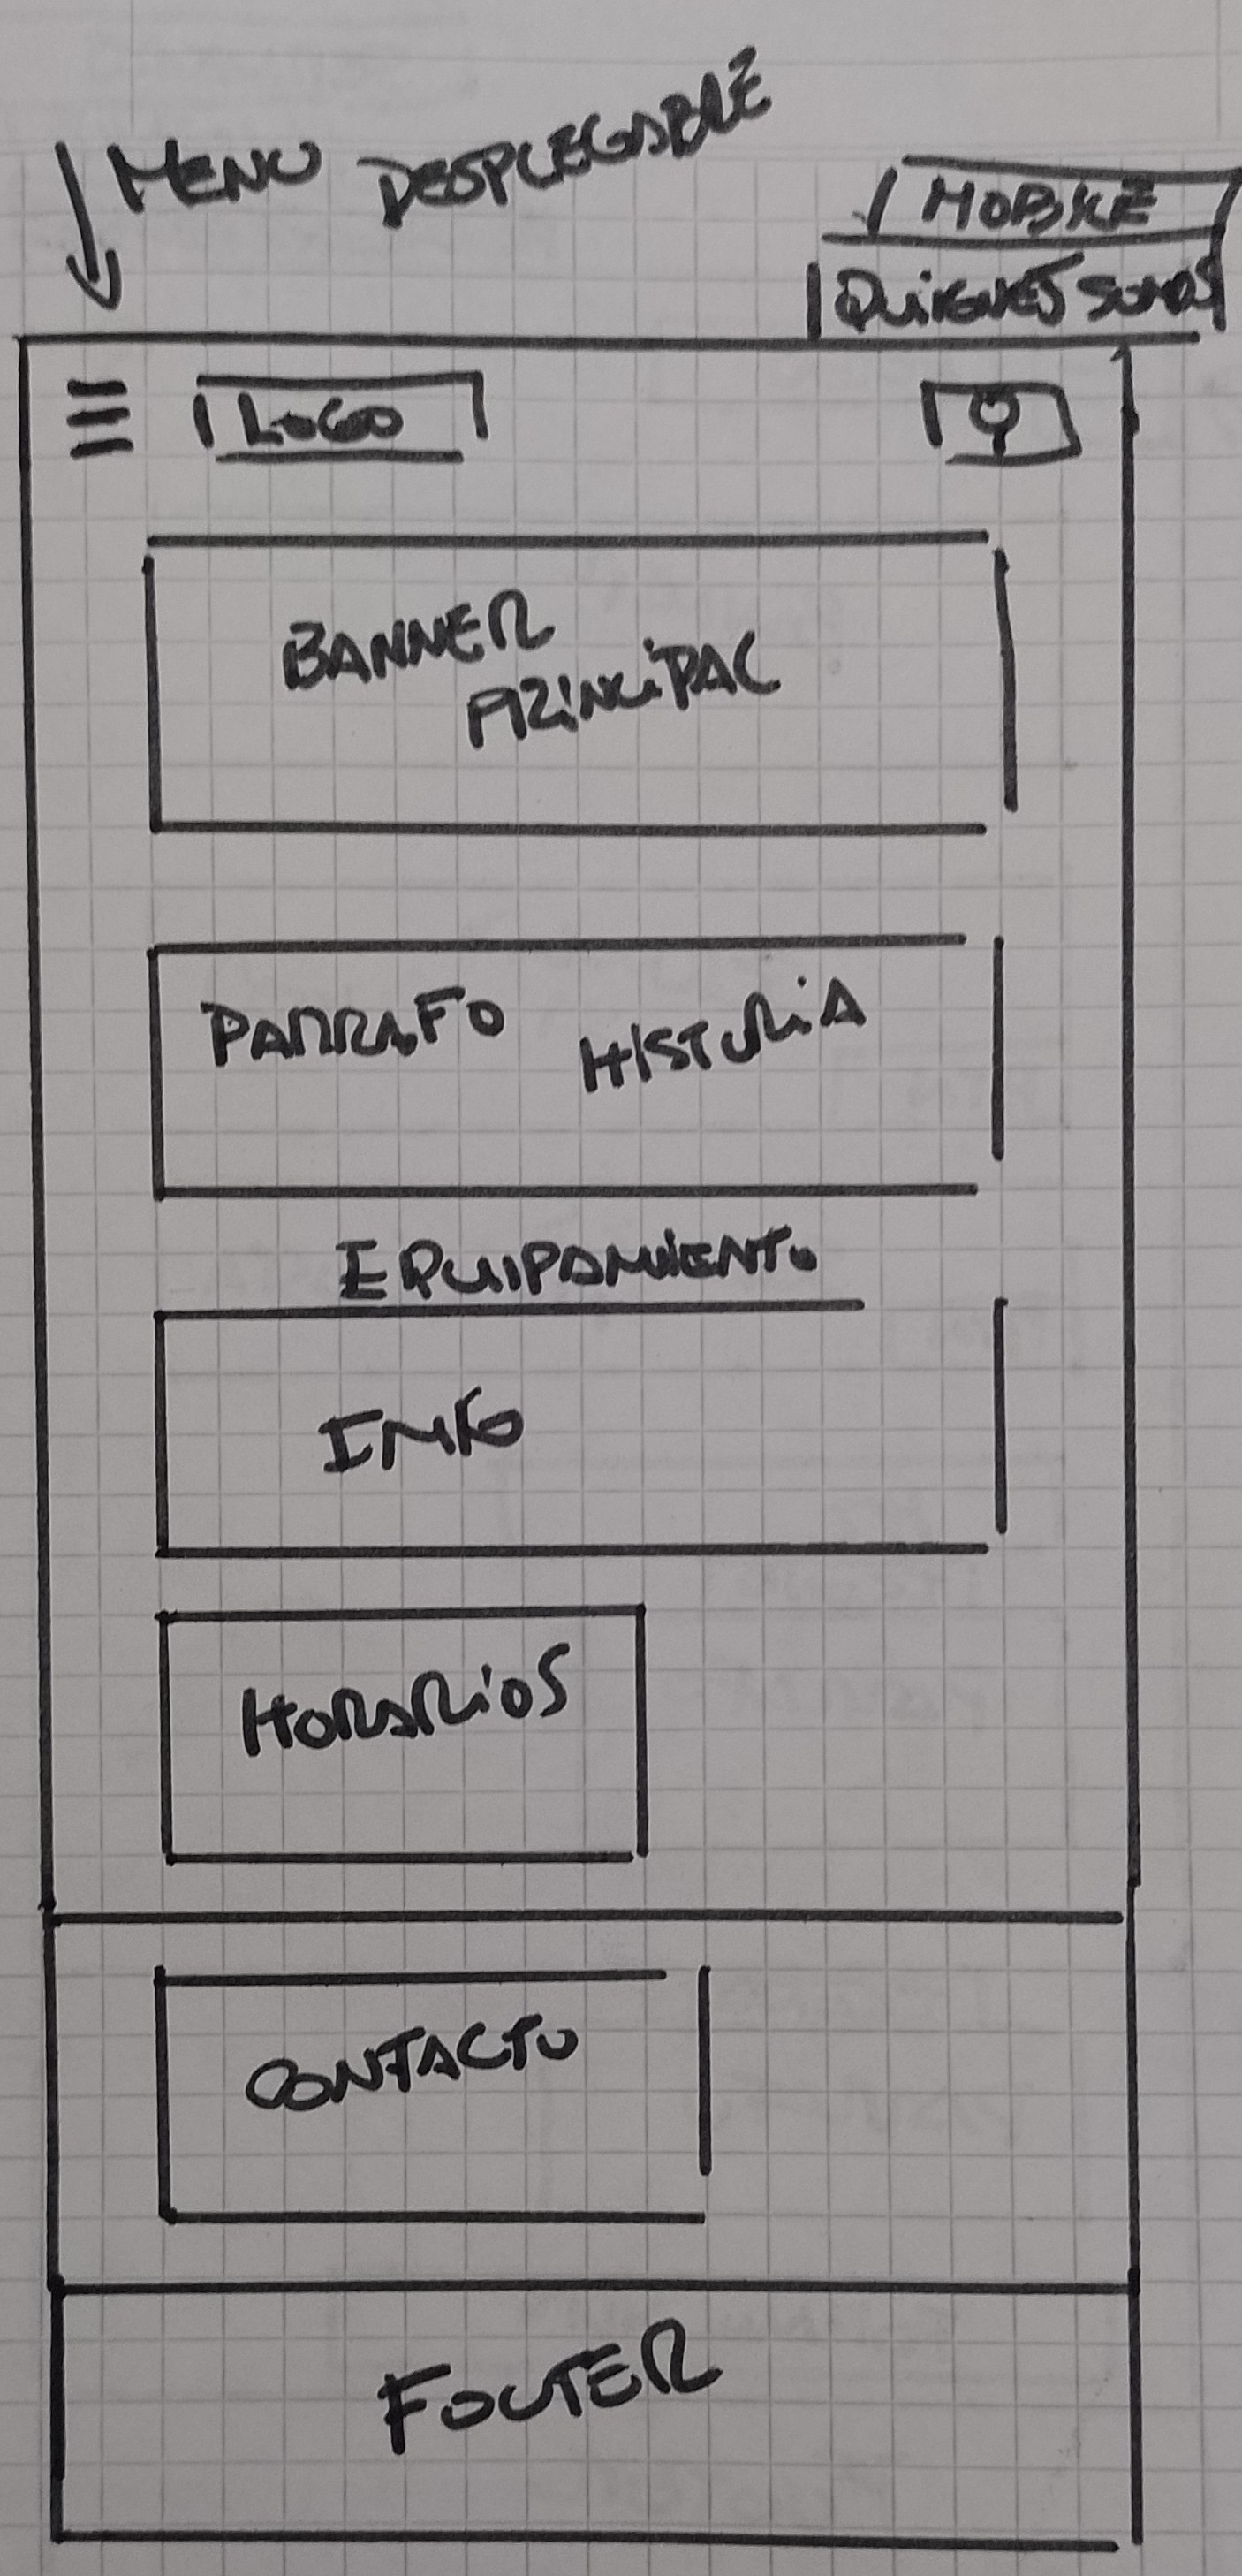 MENU DESPLEGABLE
MOBILE
QUIENES SOMOS
LOGO
BANNER
PRINCIPAL
PARRAFO HISTORIA
EQUIPAMIENTO
HORARIOS
CONTACTO
FOOTER